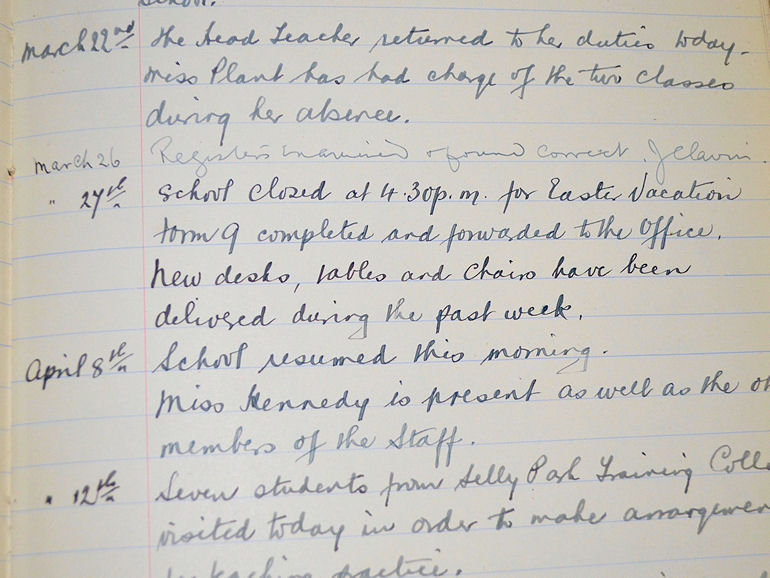 School.
March 22nd The Head Teacher returned to her duties today.
Miss Plant has had charge of the two classes
during her absence.
March 26 Registers examined & found correct. J Clavin.
" 27th School closed at 4.30p.m. for Easter Vacation
Form 9 completed and forwarded to the Office.
New desks, tables and chairs have been
delivered during the past week.
April 8th School resumed this morning.
Miss Kennedy is present as well as the ot
members of the Staff.
" 12th Seven students from Selly Park Training Colle
visited today in order to make arrangemen
teaching practice.